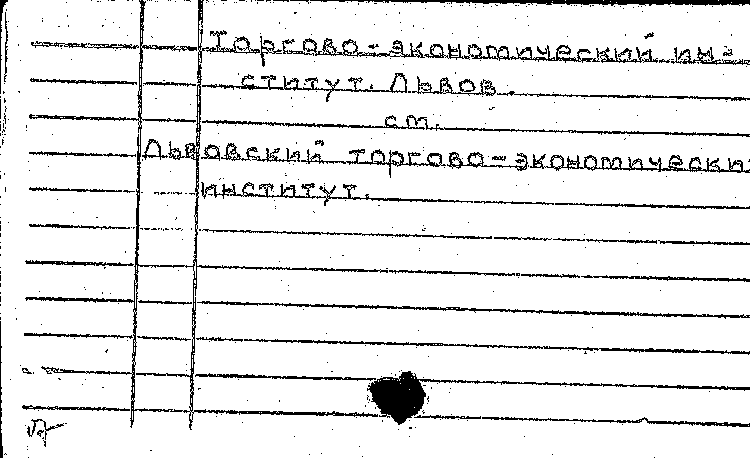 Торгово-экономический ин-
ститут. Львов.
см.
Львовский торгово-экономически
институт.